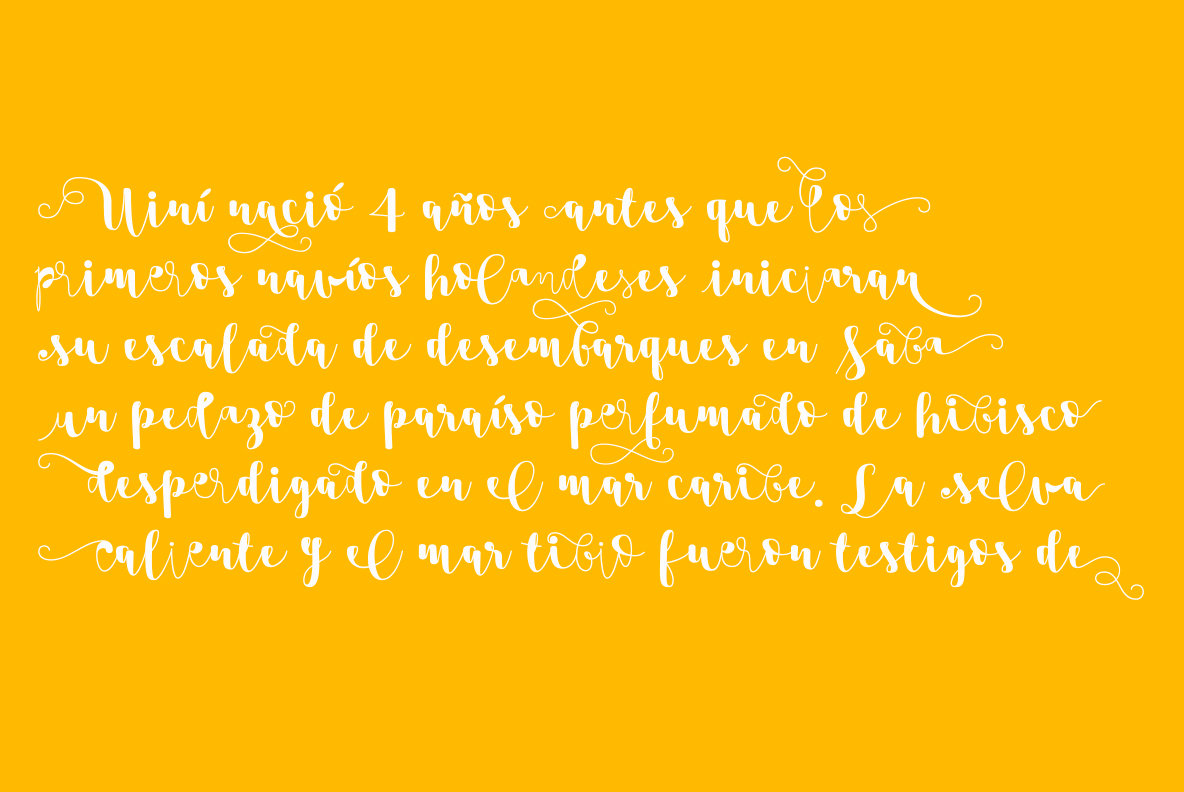 Uiní nació 4 años antes que los
primeros navíos holandeses iniciaran
su escalada de desembarques en Saba
un pedazo de paraíso perfumado de hibisco
desperdigado en el mar caribe. La selva
caliente y el mar tibio fueron testigos de